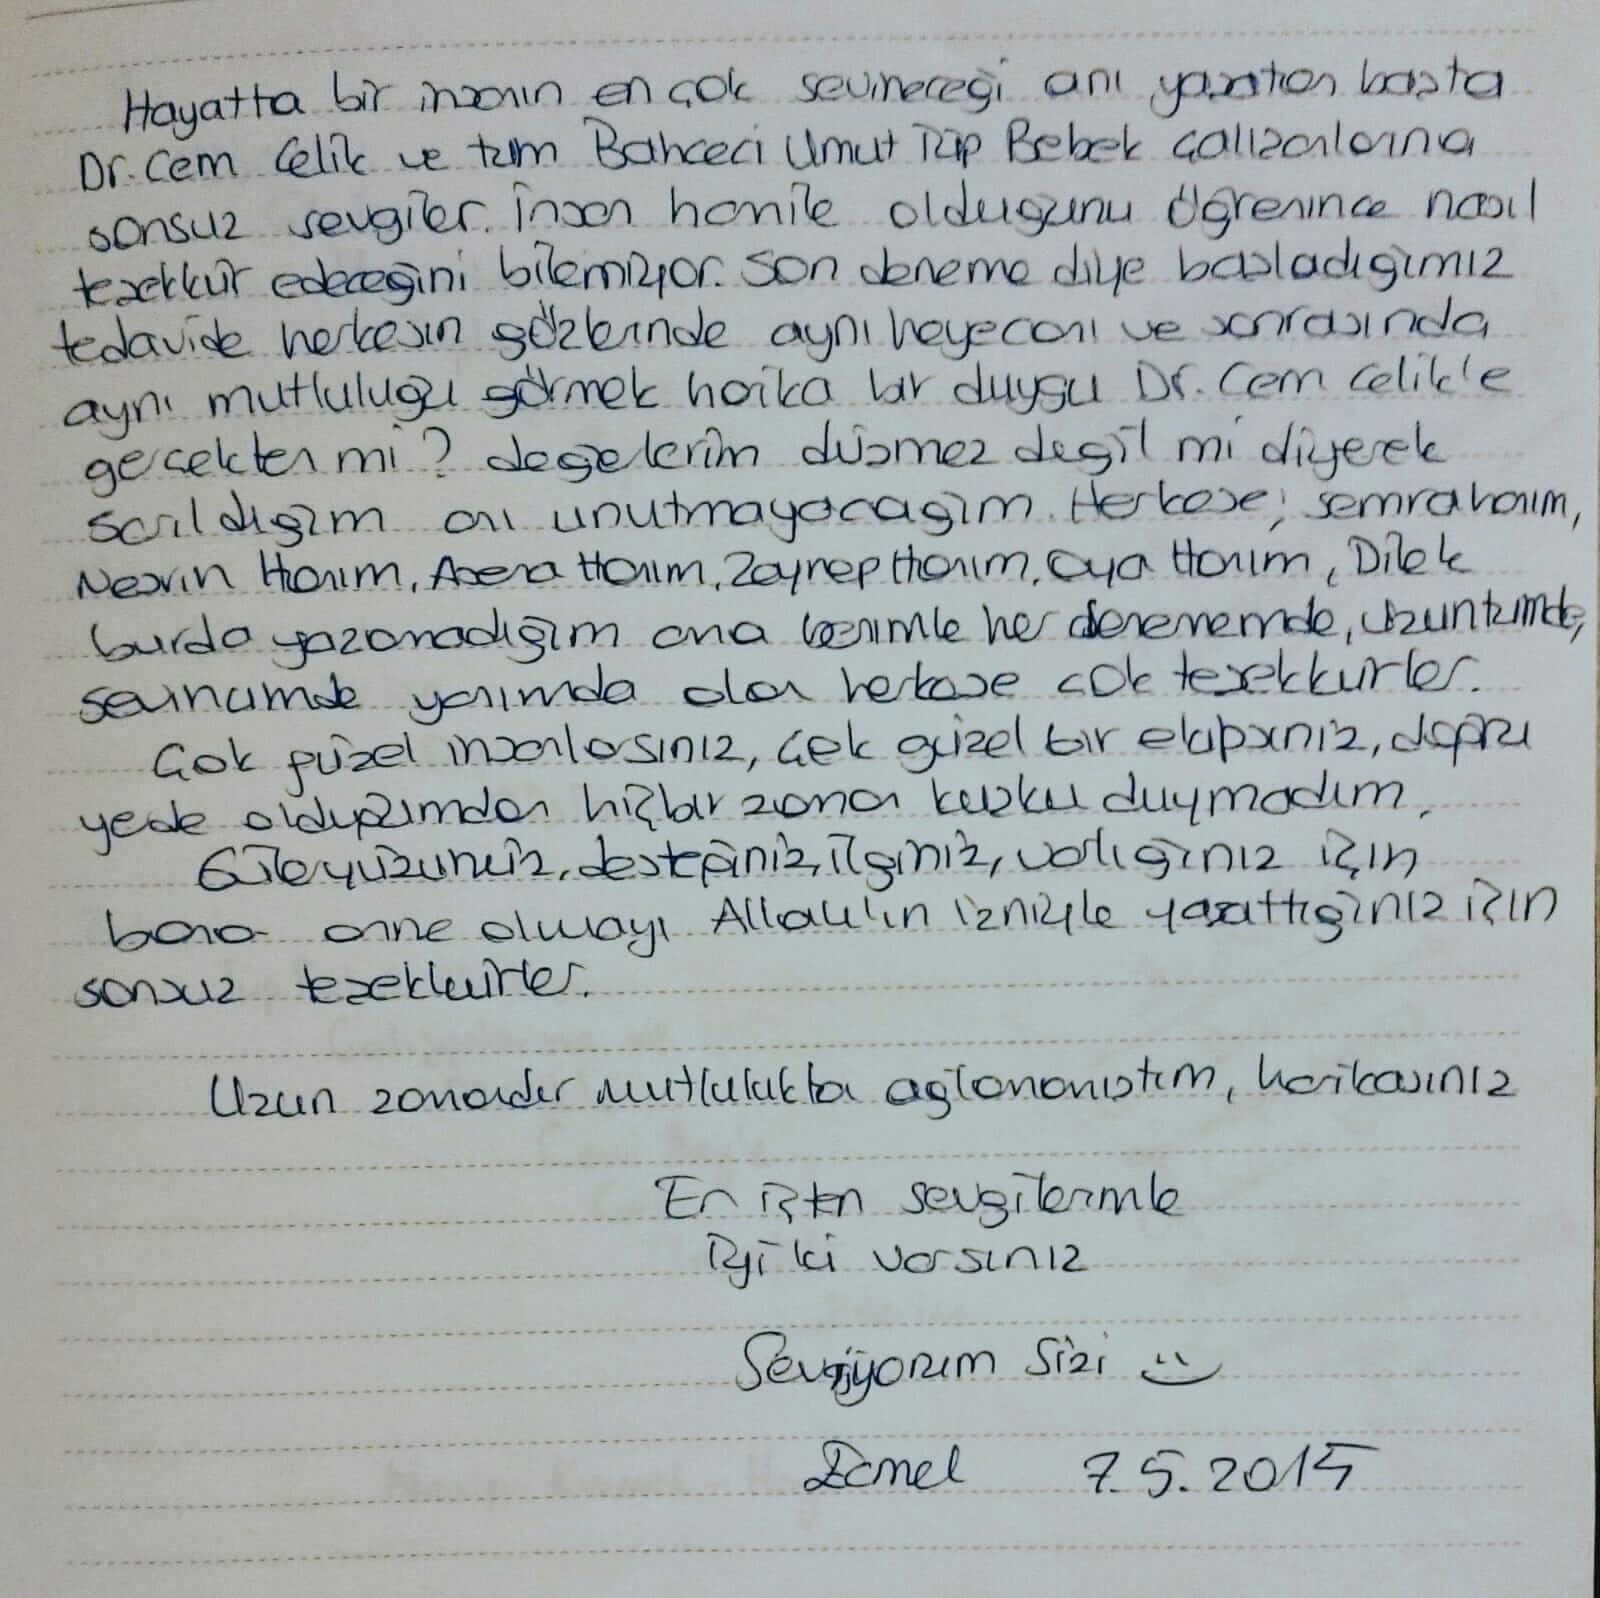 Hayatta bir insanın en çok sevineceği anı yaşatan başta
Dr. Cem Çelik ve tüm Bahçeci Umut Tüp Bebek çalışanlarına
sonsuz sevgiler. İnsan hamile olduğunu öğrenince nasıl
teşekkür edeceğini bilemiyor. Son deneme diye başladığımız
tedavide herkesin gözlerinde aynı heyecanı ve sonrasında
aynı mutluluğu görmek harika bir duygu Dr. Cem Çelik'e
gerçekten mi? değerlerim düşmez değil mi diyerek
sarıldığım anı unutmayacağım. Herkese; Semra hanım,
Nesrin Hanım, Asena Hanım, Zeynep Hanım, Oya Hanım, Dilek
burda yazamadığım ama benimle her denememde, üzüntümde,
sevincimde yanımda olan herkese çok teşekkürler.
Çok güzel insanlarsınız, çok güzel bir ekipsiniz, doğru
yerde olduğumdan hiçbir zaman kuşku duymadım.
Güleryüzünüz, desteğiniz, ilginiz, varlığınız için
bana anne olmayı Allah'ın izniyle yaşattığınız için
sonsuz teşekkürler.
Uzun zamandır mutluluktan ağlamamıştım, harikasınız
En içten sevgilerimle
iyi ki varsınız
Seviyorum sizi
7.5.2015